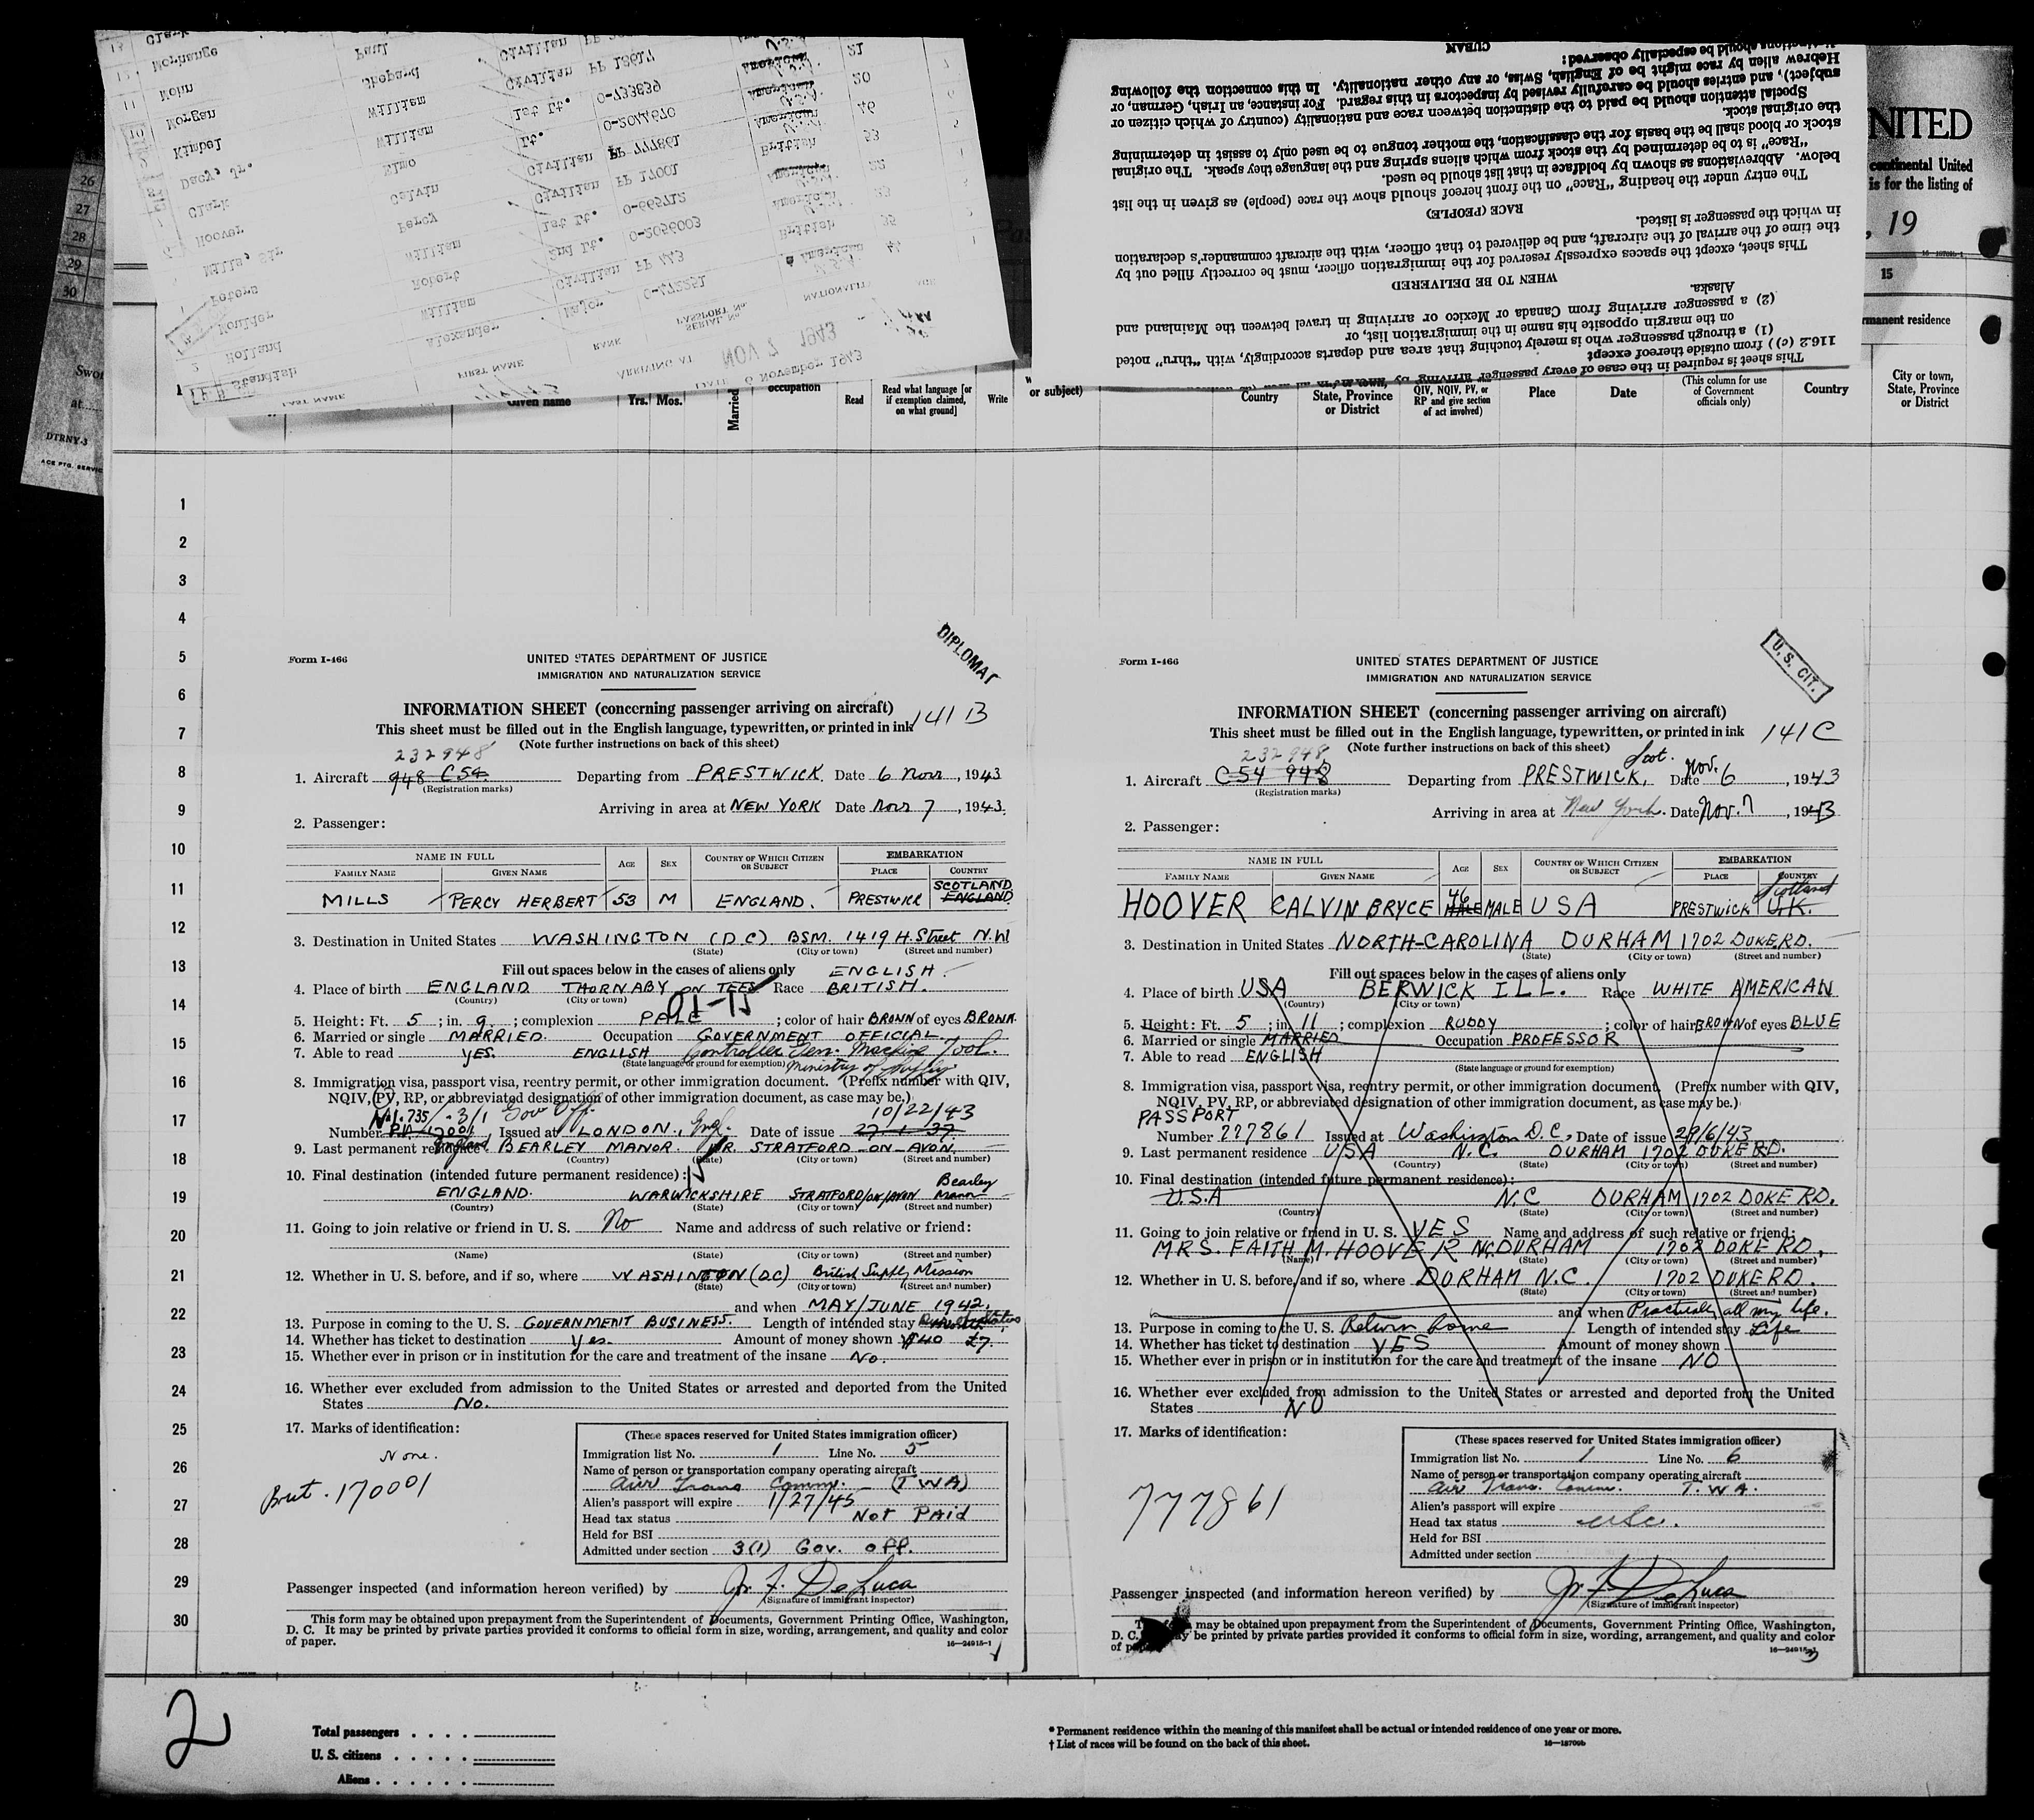 UNITED
continental United
is for the listing of
, 19
15
manent residence
City or town,
State, Province
or District
26
27
28
29
30
Swor
at
DTRNY-3
ACE PTG. SERVIC
LAST NAME
FIRST NAME
RANK
SERIAL No.
PASSPORT No.
NATIONALITY
AGE
ARRIVING AT
NOV 7 1943
DATE 6 November 1943
Standish Alexander Major O-472251 44
Holland William Civilian PP 443 British 35
Moulder Robert 2nd Lt. O-2056003
Peters William 1st Lt. O-665712 22
Mills, Sir Percy Civilian PP 17001 British 53
Hoover Calvin Civilian PP 777861 46
Clark Elmo Lt.
Dacy, Jr. William 1st Lt. O-733839
Kimbel William Civilian PP 18617 21
Morgan Shepard Civilian
Kohn Paul
Morhange
Clark
This sheet is required in the case of every passenger arriving by
116.2 (c)) from outside thereof except
(1) a through passenger who is merely touching that area and departs accordingly, with "thru" noted
on the margin opposite his name in the immigration list, or
(2) a passenger arriving from Canada or Mexico or arriving in travel between the Mainland and
Alaska.
WHEN TO BE DELIVERED
This sheet, except the spaces expressly reserved for the immigration officer, must be correctly filled out by
the time of the arrival of the aircraft, and be delivered to that officer, with the aircraft commander's declaration
in which the passenger is listed.
RACE (PEOPLE)
The entry under the heading "Race" on the front hereof should show the race (people) as given in the list
below. Abbreviations as shown by boldface in that list should be used.
"Race" is to be determined by the stock from which aliens spring and the language they speak. The original
stock or blood shall be the basis for the classification, the mother tongue to be used only to assist in determining
the original stock.
Special attention should be paid to the distinction between race and nationality (country of which citizen or
subject), and entries should be carefully revised by inspectors in this regard. For instance, an Irish, German, or
Hebrew alien by race might be of English, Swiss, or any other nationality. In this connection the following
distinctions should be especially observed:
CUBAN
Given name
Yrs. Mos.
Married
occupation
Read
Read what language [or
if exemption claimed,
on what ground]
Write
or subject)
Country
State, Province
or District
QIV, NQIV, PV, or
RP and give section
of act involved)
Place
Date
(This column for use
of Government
officials only)
Country
1
2
3
4
5
6
7
8
9
10
11
12
13
14
15
16
17
18
19
20
21
22
23
24
25
26
27
28
29
30
Form I-466
DIPLOMAT
UNITED STATES DEPARTMENT OF JUSTICE
IMMIGRATION AND NATURALIZATION SERVICE
INFORMATION SHEET (concerning passenger arriving on aircraft)
This sheet must be filled out in the English language, typewritten, or printed in ink 141 B
(Note further instructions on back of this sheet)
232948
1. Aircraft 948 C54 Departing from PRESTWICK. Date 6 Nov, 1943
(Registration marks)
Arriving in area at NEW YORK Date Nov 7, 1943.
2. Passenger:
NAME IN FULL AGE SEX COUNTRY OF WHICH CITIZEN OR SUBJECT EMBARKATION
FAMILY NAME GIVEN NAME PLACE COUNTRY
MILLS PERCY HERBERT 53 M ENGLAND. PRESTWICK SCOTLAND ENGLAND
3. Destination in United States WASHINGTON (DC) BSM. 1419 H. Street N.W
(State) (City or town) (Street and number)
Fill out spaces below in the cases of aliens only ENGLISH.
4. Place of birth ENGLAND THORNABY ON TEES Race BRITISH.
(Country) (City or town)
01-15
5. Height: Ft. 5; in. 9; complexion PALE; color of hair BROWN of eyes BROWN.
6. Married or single MARRIED. Occupation GOVERNMENT OFFICIAL.
7. Able to read YES. ENGLISH Controller Gen. Machine Tool.
(State language or ground for exemption) Ministry of Supply
8. Immigration visa, passport visa, reentry permit, or other immigration document. (Prefix number with QIV,
NQIV, PV, RP, or abbreviated designation of other immigration document, as case may be.)
No. 1.735/.3/1 Gov Off. 10/22/43
Number P.V. 17001 Issued at LONDON, Engl. Date of issue 27-1-37
9. Last permanent residence England BEARLEY MANOR NR. STRATFORD-ON-AVON.
(Country) (State) (City or town) (Street and number)
10. Final destination (intended future permanent residence):
ENGLAND. WARWICKSHIRE STRATFORD/ON/AVON Bearley Manor
(Country) (State) (City or town) (Street and number)
11. Going to join relative or friend in U. S. No Name and address of such relative or friend:
(Name) (State) (City or town) (Street and number)
12. Whether in U. S. before, and if so, where WASHINTON (DC) British Supply Mission
(State) (City or town) (Street and number)
and when MAY/JUNE 1942.
13. Purpose in coming to the U. S. GOVERNMENT BUSINESS. Length of intended stay
14. Whether has ticket to destination Yes. Amount of money shown $40 £7.
15. Whether ever in prison or in institution for the care and treatment of the insane No.
16. Whether ever excluded from admission to the United States or arrested and deported from the United
States No.
17. Marks of identification:
None.
Brit. 170001
(These spaces reserved for United States immigration officer)
Immigration list No. 1 Line No. 5
Name of person or transportation company operating aircraft
Air Trans Comm. (TWA)
Alien's passport will expire 1/27/45
Head tax status NOT PAID
Held for BSI
Admitted under section 3(1) Gov. OFF.
Passenger inspected (and information hereon verified) by Jr. F. De Luca
(Signature of immigrant inspector)
This form may be obtained upon prepayment from the Superintendent of Documents, Government Printing Office, Washington,
D. C. It may be printed by private parties provided it conforms to official form in size, wording, arrangement, and quality and color
of paper.
16—24915-1
Form I-466
U. S. CIT.
UNITED STATES DEPARTMENT OF JUSTICE
IMMIGRATION AND NATURALIZATION SERVICE
INFORMATION SHEET (concerning passenger arriving on aircraft)
This sheet must be filled out in the English language, typewritten, or printed in ink 141C
(Note further instructions on back of this sheet)
232948 Scot.
1. Aircraft C54 948 Departing from PRESTWICK, Date Nov. 6, 1943
(Registration marks)
Arriving in area at New York. Date Nov. 7, 1943
2. Passenger:
NAME IN FULL AGE SEX COUNTRY OF WHICH CITIZEN OR SUBJECT EMBARKATION
FAMILY NAME GIVEN NAME PLACE COUNTRY
HOOVER CALVIN BRYCE 46 MALE MALE USA PRESTWICK Scotland U.K.
3. Destination in United States NORTH-CAROLINA DURHAM 1702 DUKE RD.
(State) (City or town) (Street and number)
Fill out spaces below in the cases of aliens only
4. Place of birth USA BERWICK ILL. Race WHITE AMERICAN
(Country) (City or town)
5. Height: Ft. 5; in. 11; complexion RUDDY; color of hair BROWN of eyes BLUE
6. Married or single MARRIED Occupation PROFESSOR
7. Able to read ENGLISH
(State language or ground for exemption)
8. Immigration visa, passport visa, reentry permit, or other immigration document. (Prefix number with QIV,
NQIV, PV, RP, or abbreviated designation of other immigration document, as case may be.)
PASSPORT
Number 777861 Issued at Washington D.C., Date of issue 29/6/43
9. Last permanent residence USA N.C. DURHAM 1702 DUKE RD.
(Country) (State) (City or town) (Street and number)
10. Final destination (intended future permanent residence):
U.S.A N.C DURHAM 1702 DUKE RD.
(Country) (State) (City or town) (Street and number)
11. Going to join relative or friend in U. S. YES Name and address of such relative or friend:
MRS. FAITH M. HOOVER N.C. DURHAM 1702 DUKE RD.
(Name) (State) (City or town) (Street and number)
12. Whether in U. S. before, and if so, where DURHAM N.C. 1702 DUKE RD.
(State) (City or town) (Street and number)
and when Practically all my life.
13. Purpose in coming to the U. S. Return home Length of intended stay Life
14. Whether has ticket to destination YES Amount of money shown
15. Whether ever in prison or in institution for the care and treatment of the insane NO
16. Whether ever excluded from admission to the United States or arrested and deported from the United
States NO
17. Marks of identification:
777861
(These spaces reserved for United States immigration officer)
Immigration list No. 1 Line No. 6
Name of person or transportation company operating aircraft
Air Trans. Comm. T.W.A.
Alien's passport will expire
Head tax status USC.
Held for BSI
Admitted under section
Passenger inspected (and information hereon verified) by Jr. F. De Luca
(Signature of immigrant inspector)
may be obtained upon prepayment from the Superintendent of Documents, Government Printing Office, Washington,
D. C. be printed by private parties provided it conforms to official form in size, wording, arrangement, and quality and color
of
2
Total passengers
U. S. citizens
Aliens
* Permanent residence within the meaning of this manifest shall be actual or intended residence of one year or more.
† List of races will be found on the back of this sheet.
16—18709b